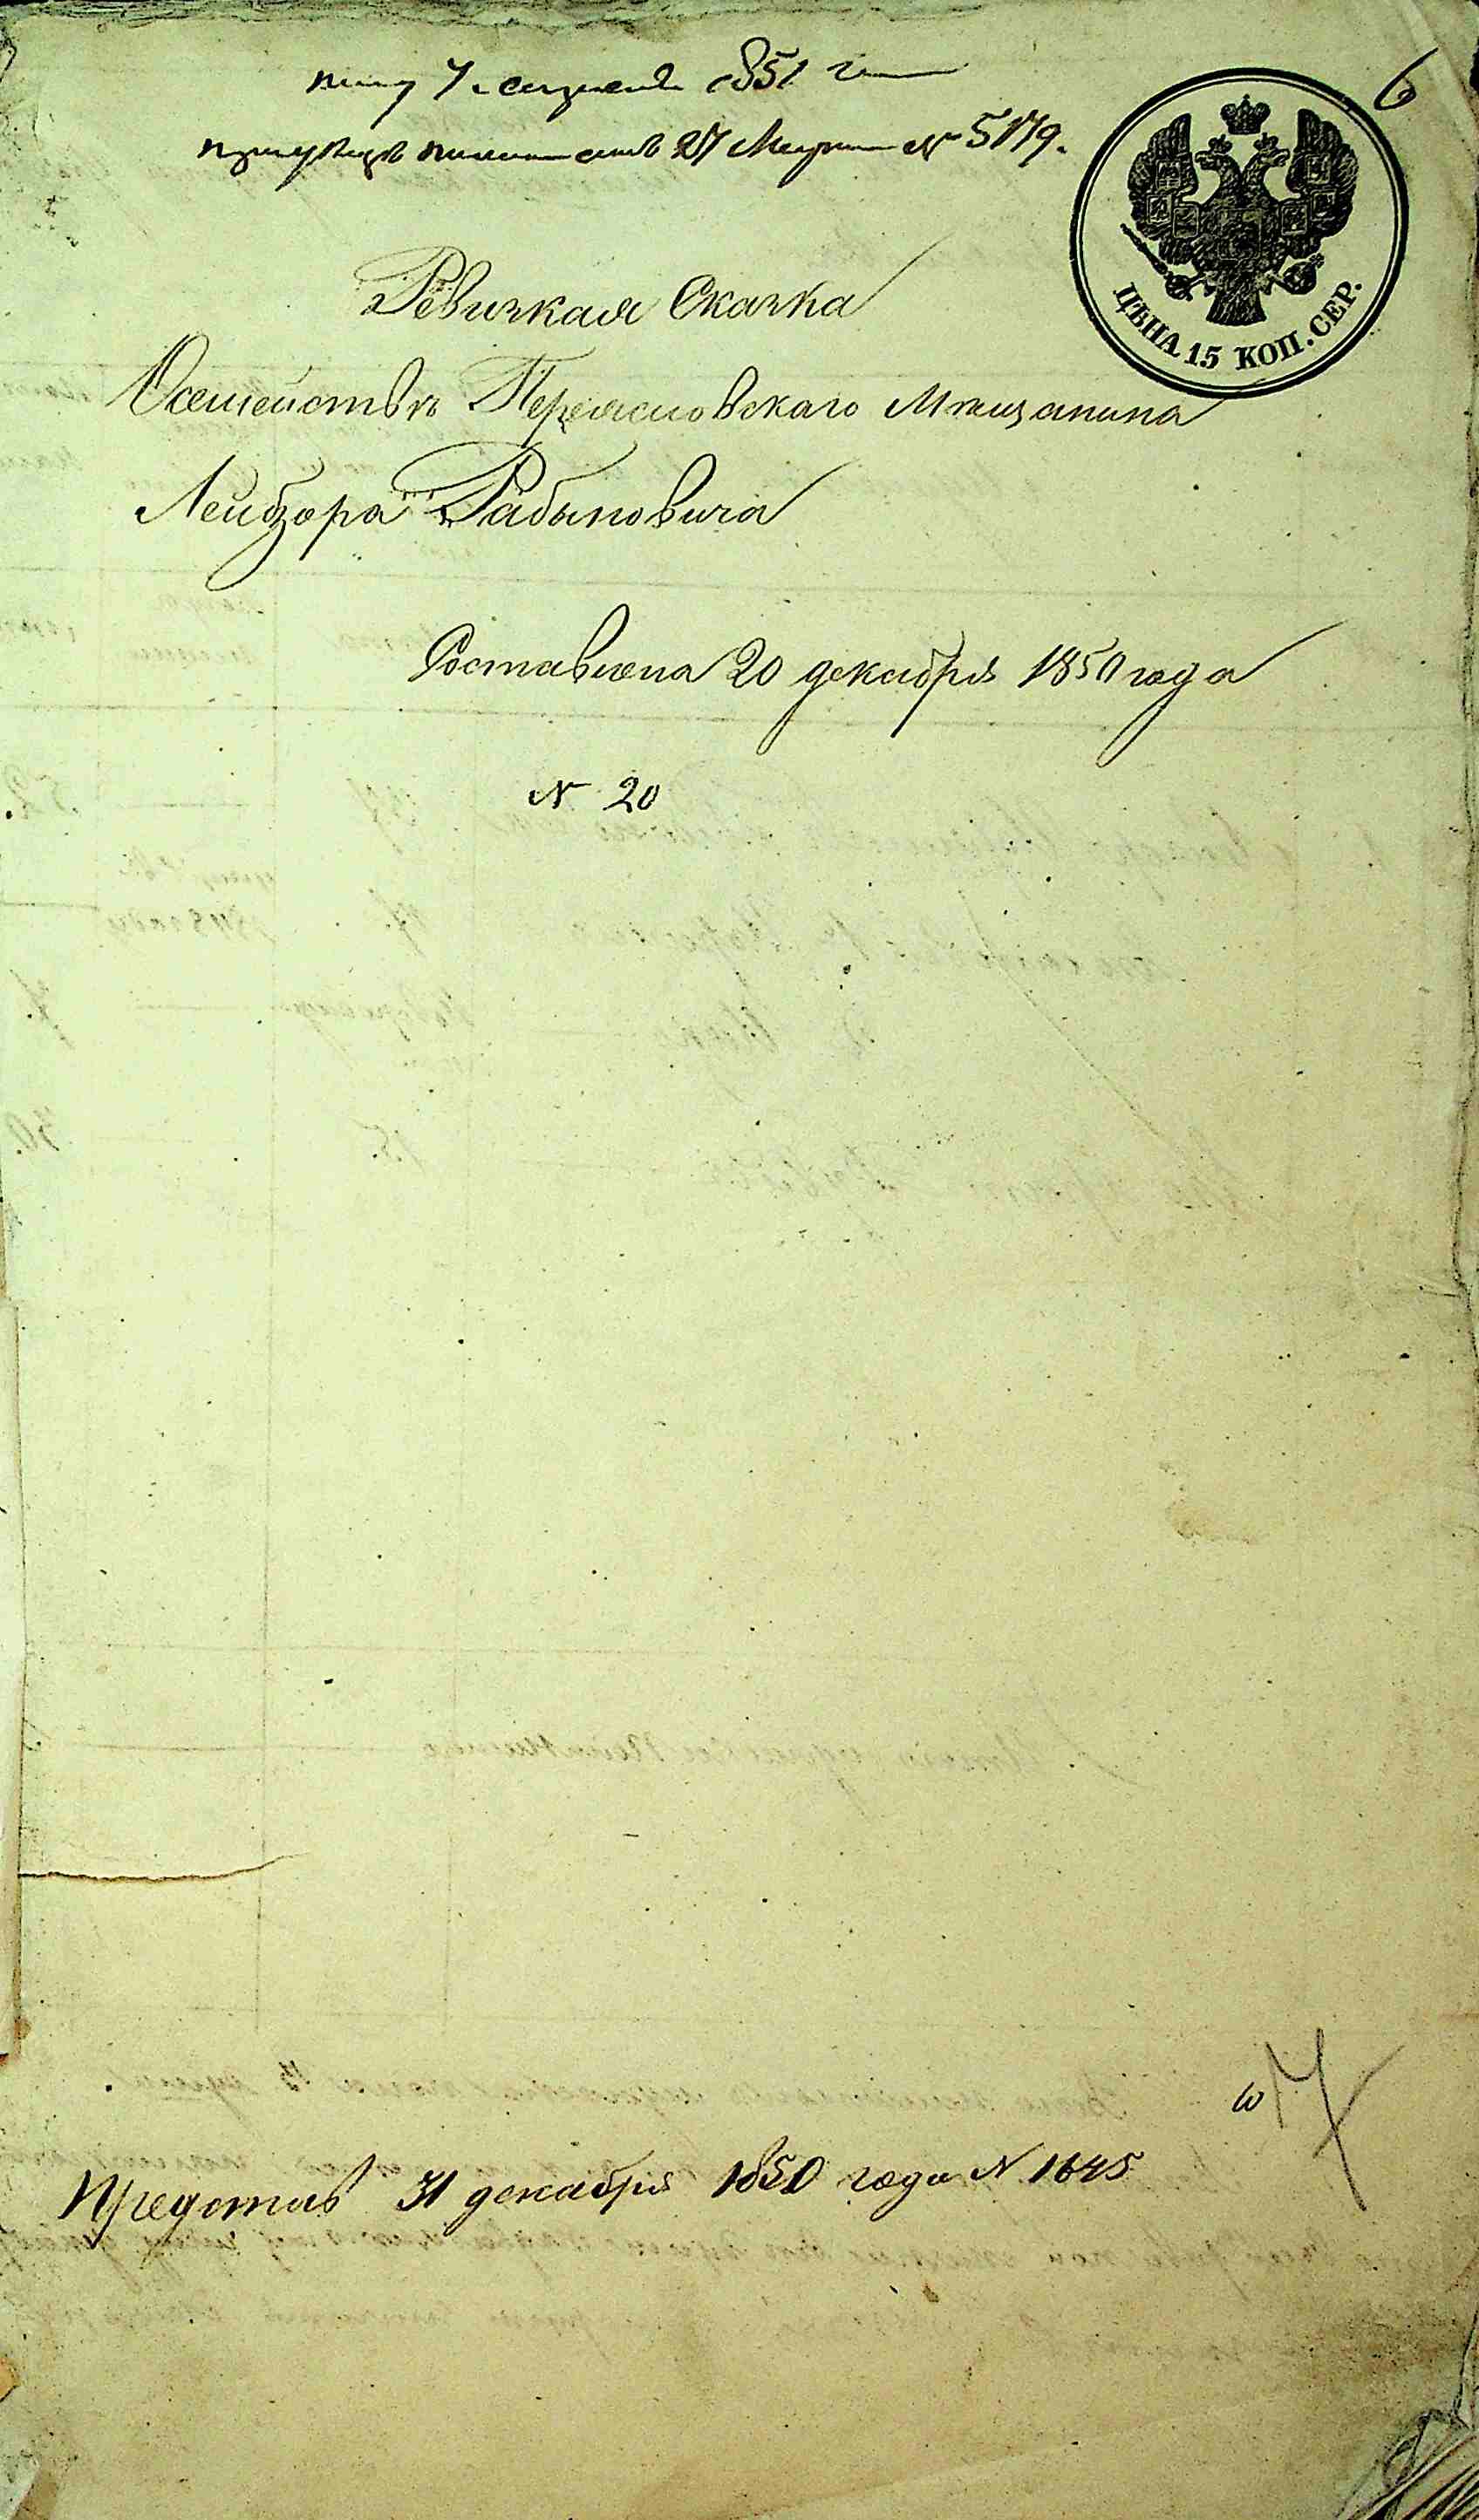 1851
27 Марта № 5179.
6
ЦѢНА 15 КОП. СЕР.
Ревизкая Сказка
Осемействѣ Переясловскаго Мѣщанина
Лейбзора Рабыновича
Составлена 20 декабря 1850 года
№ 20
Представ 31 декабря 1850 года № 1645